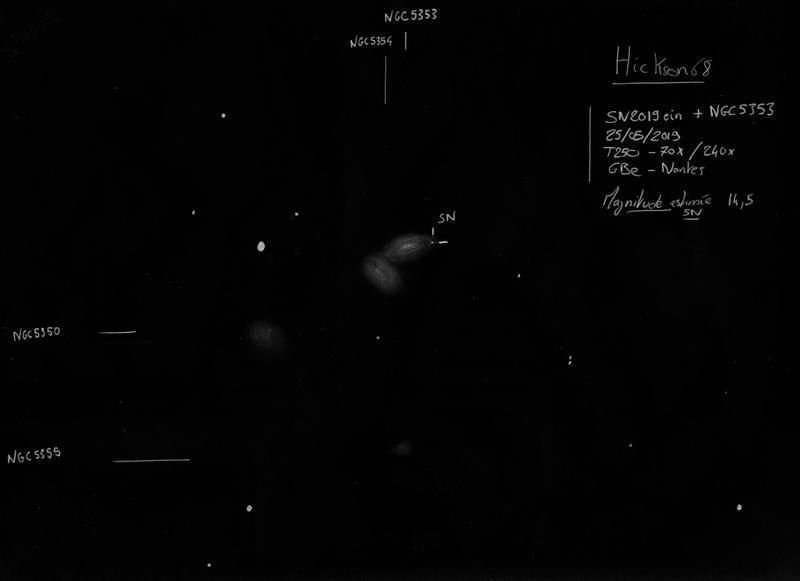 NGC5353
NGC5354
Hickson 68
SN2019ein + NGC5353
25/05/2019
T250 - 70x / 240x
GBe - Nantes
Magnitude estimée 14,5
SN
SN
NGC5350
NGC5355